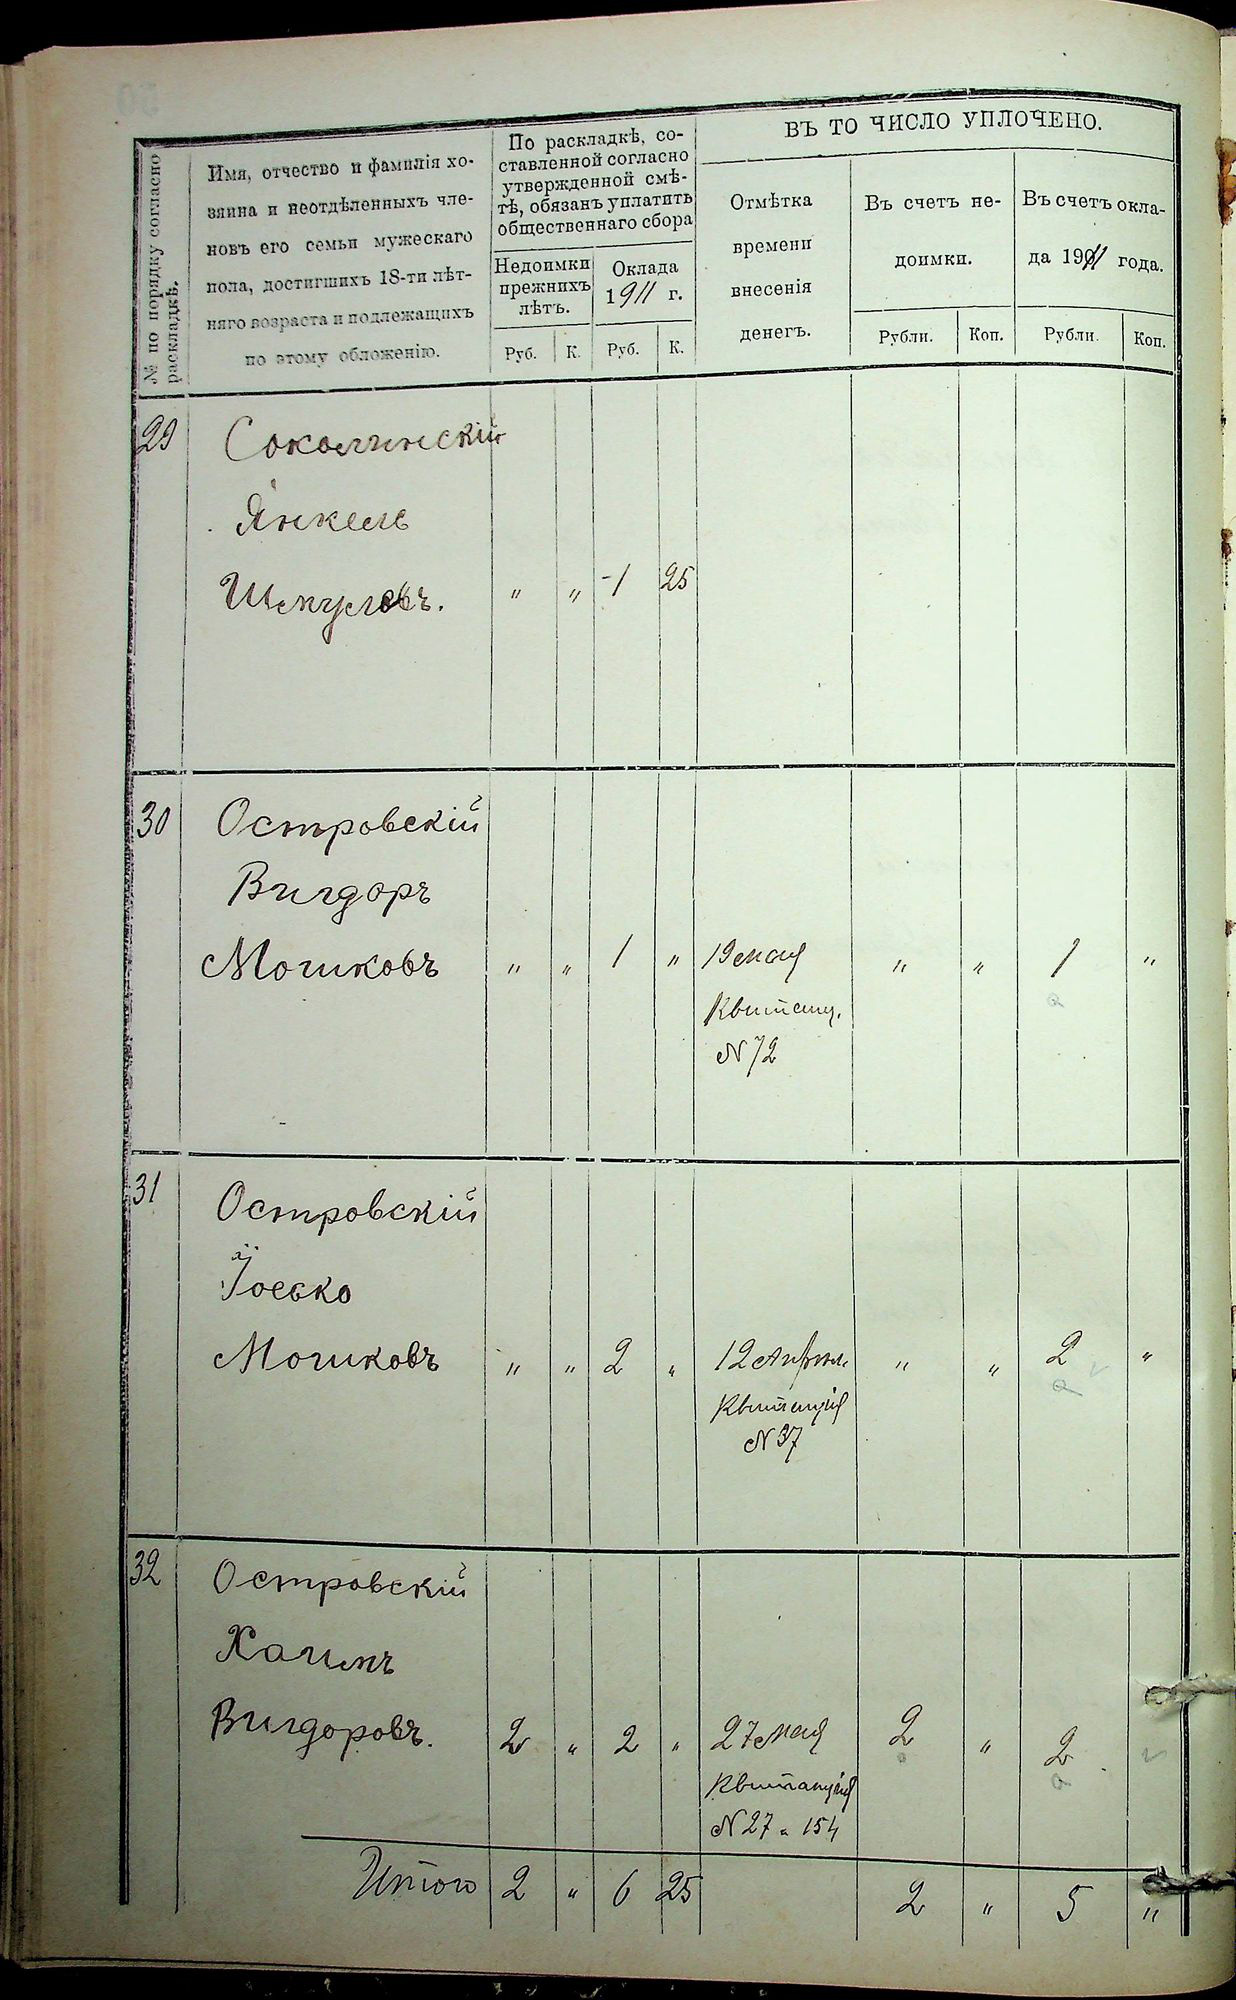 ВЪ ТО ЧИСЛО УПЛОЧЕНО.
№ по порядку согласно
раскладкѣ.
Имя, отчество и фамилія хо-
зяина и неотдѣленныхъ чле-
новъ его семьи мужескаго
пола, достигшихъ 18-ти лѣт-
няго возраста и подлежащихъ
по этому обложенію.
По раскладкѣ, со-
ставленной согласно
утвержденной смѣ-
тѣ, обязанъ уплатить
общественнаго сбора
Недоимки
прежнихъ
лѣтъ.
Оклада
1911 г.
Руб. К. Руб. К.
Отмѣтка
времени
внесенія
денегъ.
Въ счетъ не-
доимки.
Въ счетъ окла-
да 1911 года.
Рубли. Коп. Рубли. Коп.
29 Соколинскій
Янкель
Шмулевъ. " " 1 25
30 Островскій
Вигдоръ
Мошковъ " " 1 " 19 мая " " 1 "
Квитанц.
N 72
31 Островскій
Іосько
Мошковъ " " 2 " 12 Апрѣл. " " 2 "
Квитанція
N 37
32 Островскій
Хаимъ
Вигдоровъ. 2 " 2 " 27 мая 2 " 2
Квитанція
N 27 и 154
Итого 2 " 6 25 2 " 5 "